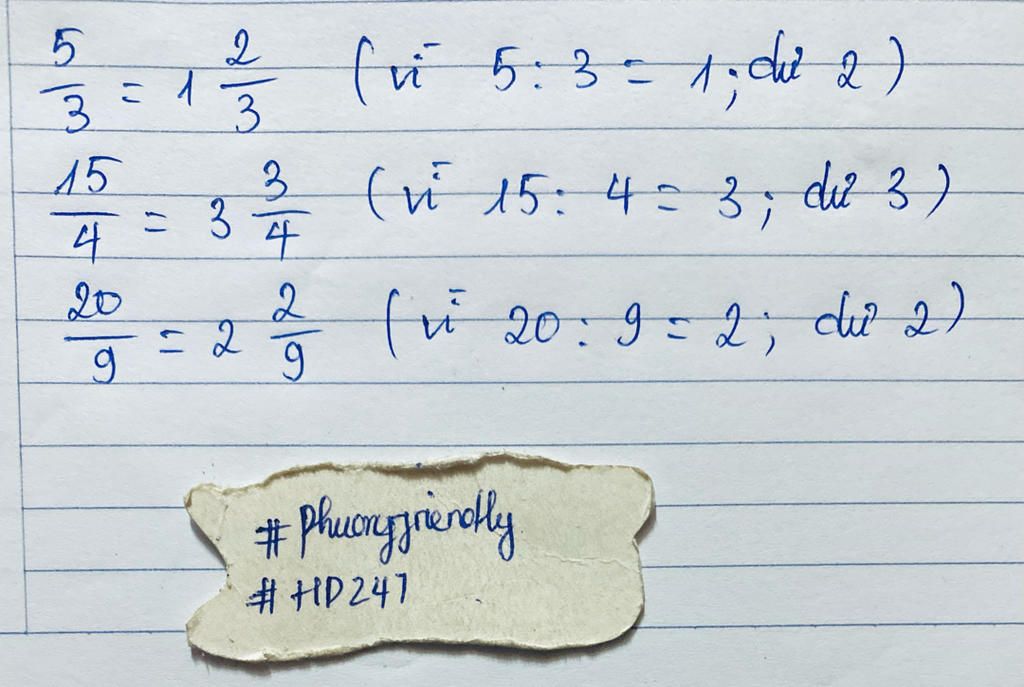 5/3 = 1 2/3 (vì 5 : 3 = 1; dư 2)
15/4 = 3 3/4 (vì 15 : 4 = 3; dư 3)
20/9 = 2 2/9 (vì 20 : 9 = 2; dư 2)
#phuongfriendly
#HD247